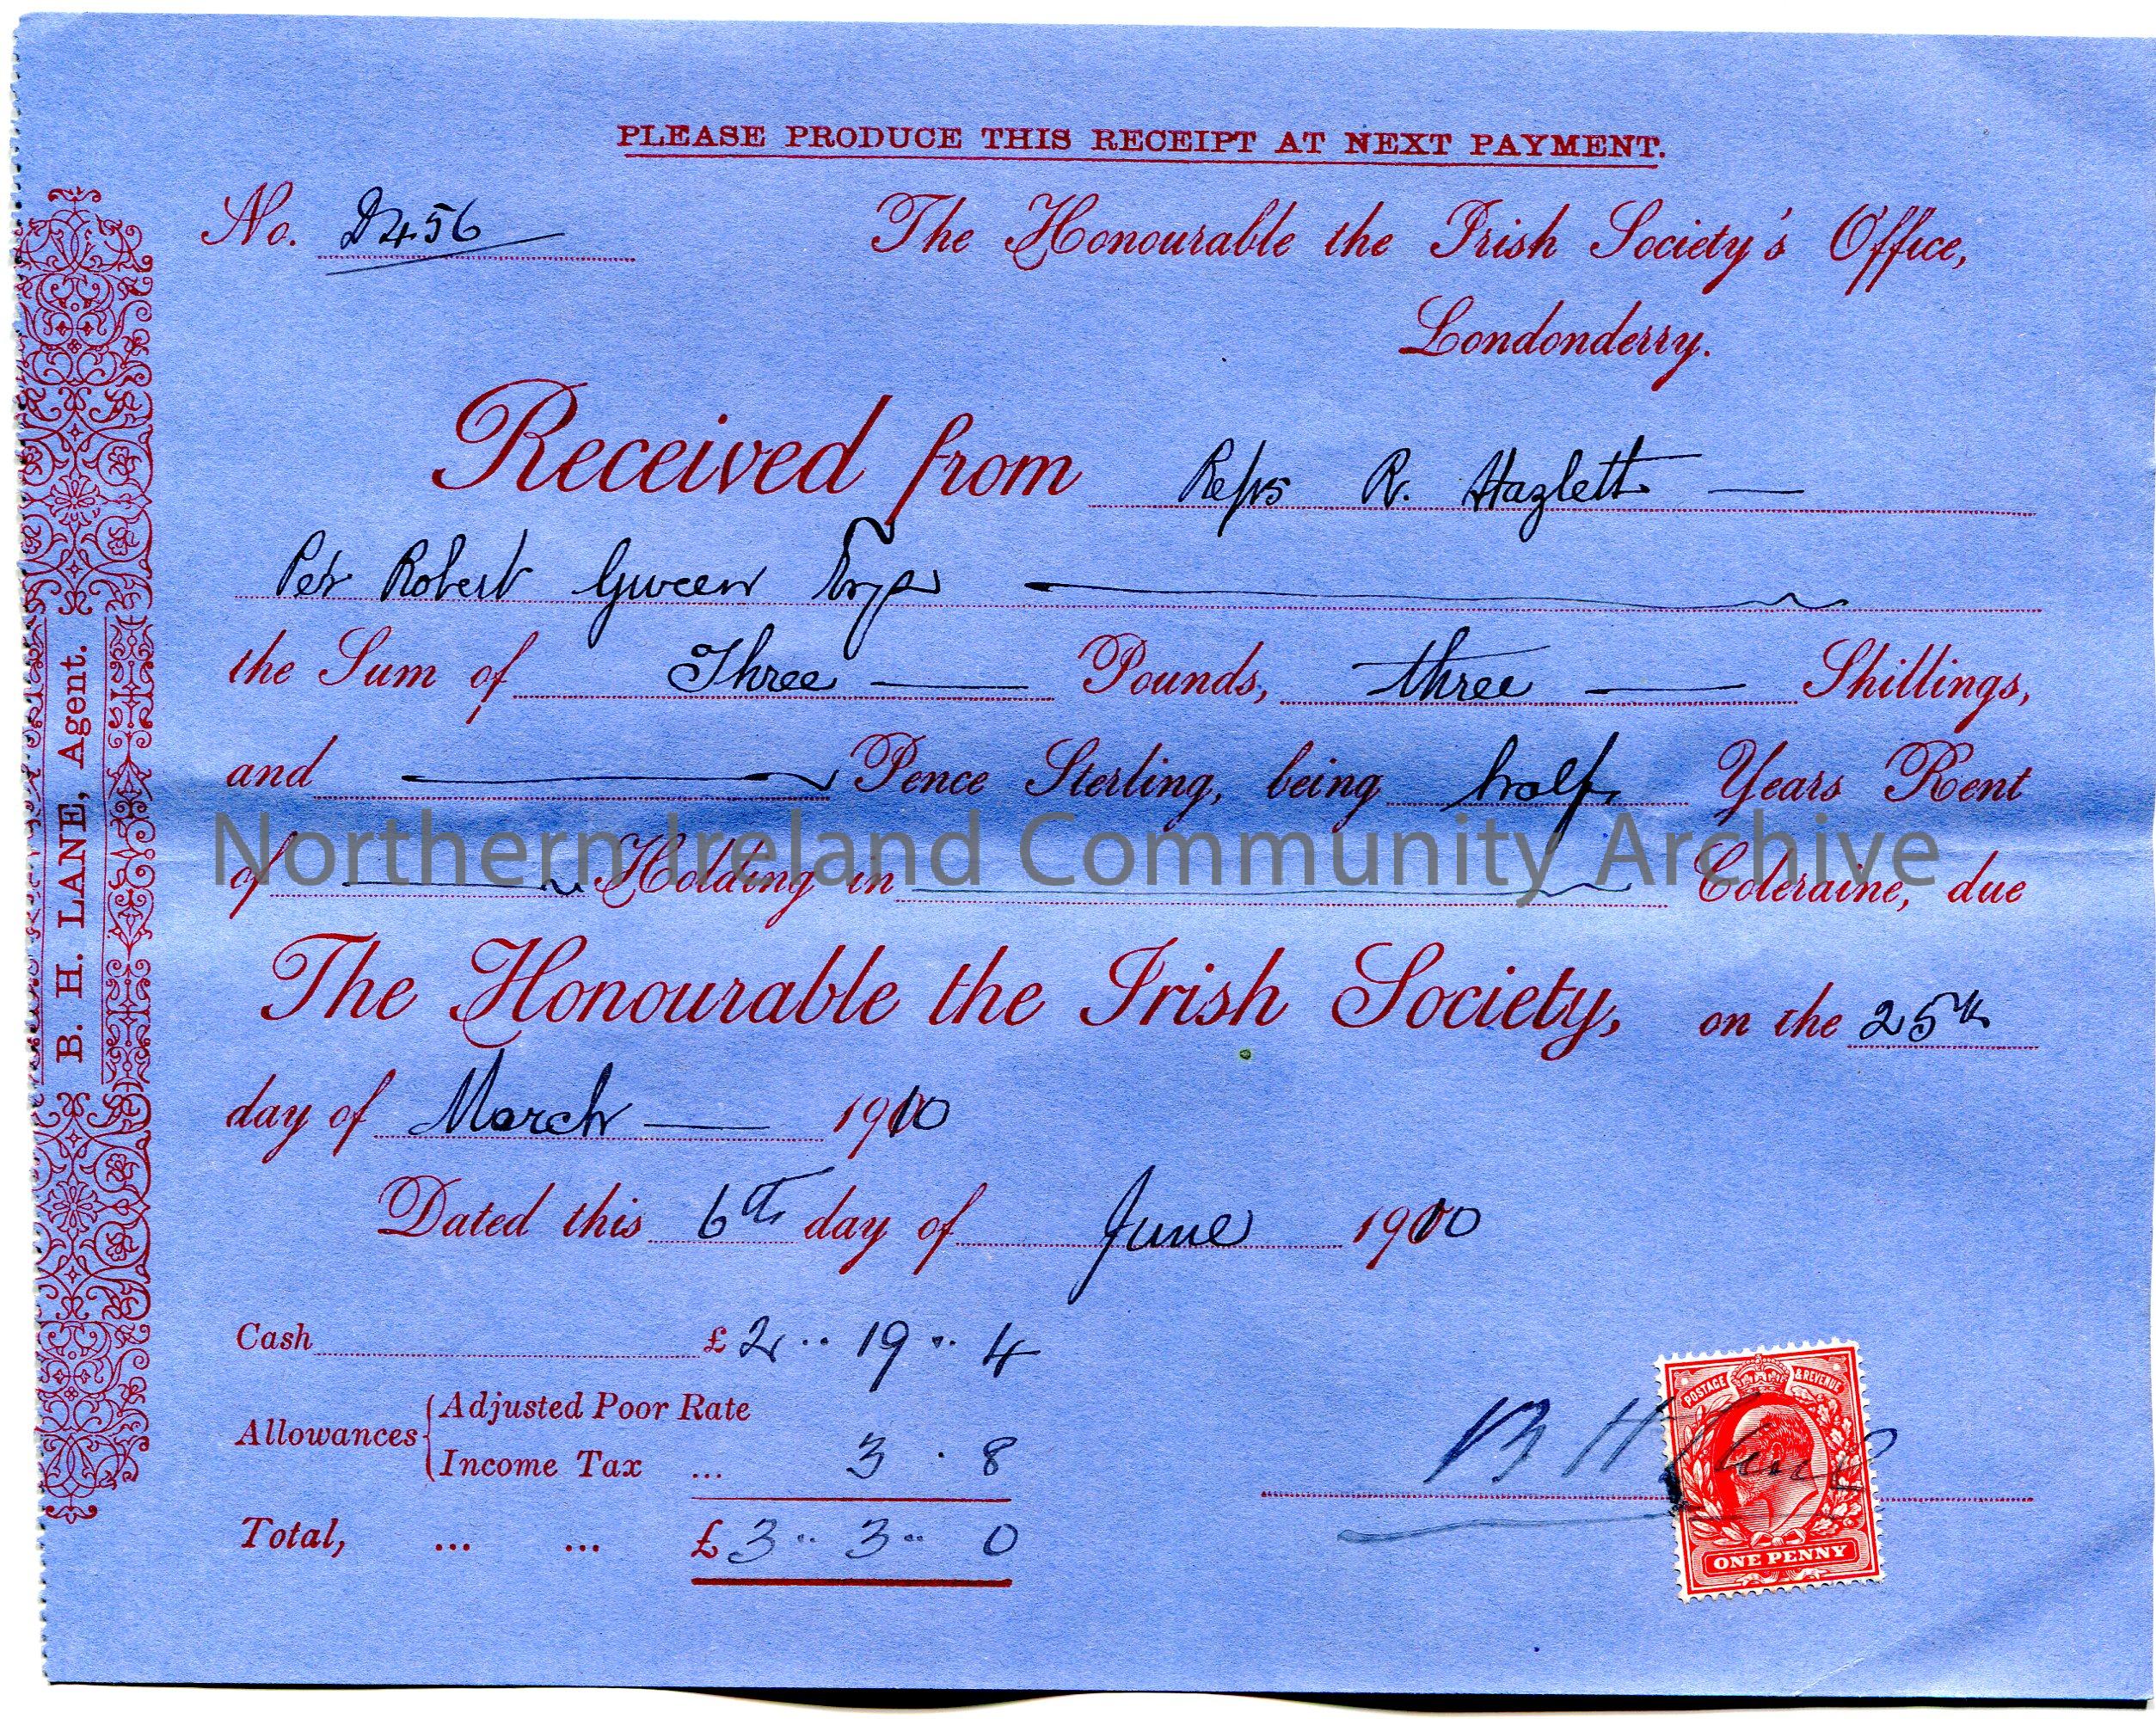 PLEASE PRODUCE THIS RECEIPT AT NEXT PAYMENT.
No. D456
The Honourable the Irish Society's Office,
Londonderry.
Received from Reps R. Hazlett
Per Robert Gween Esqr
the Sum of Three Pounds, three Shillings,
and Pence Sterling, being half Years Rent
of Holding in Coleraine, due
The Honourable the Irish Society, on the 25th
day of March 1910
Dated this 6th day of June 1910
Cash £ 2 .. 19 .. 4
Allowances { Adjusted Poor Rate
Income Tax ... 3 . 8
Total, ... ... £ 3 .. 3 .. 0
B. H. LANE, Agent.
B H Lane
POSTAGE & REVENUE
ONE PENNY
Northern Ireland Community Archive